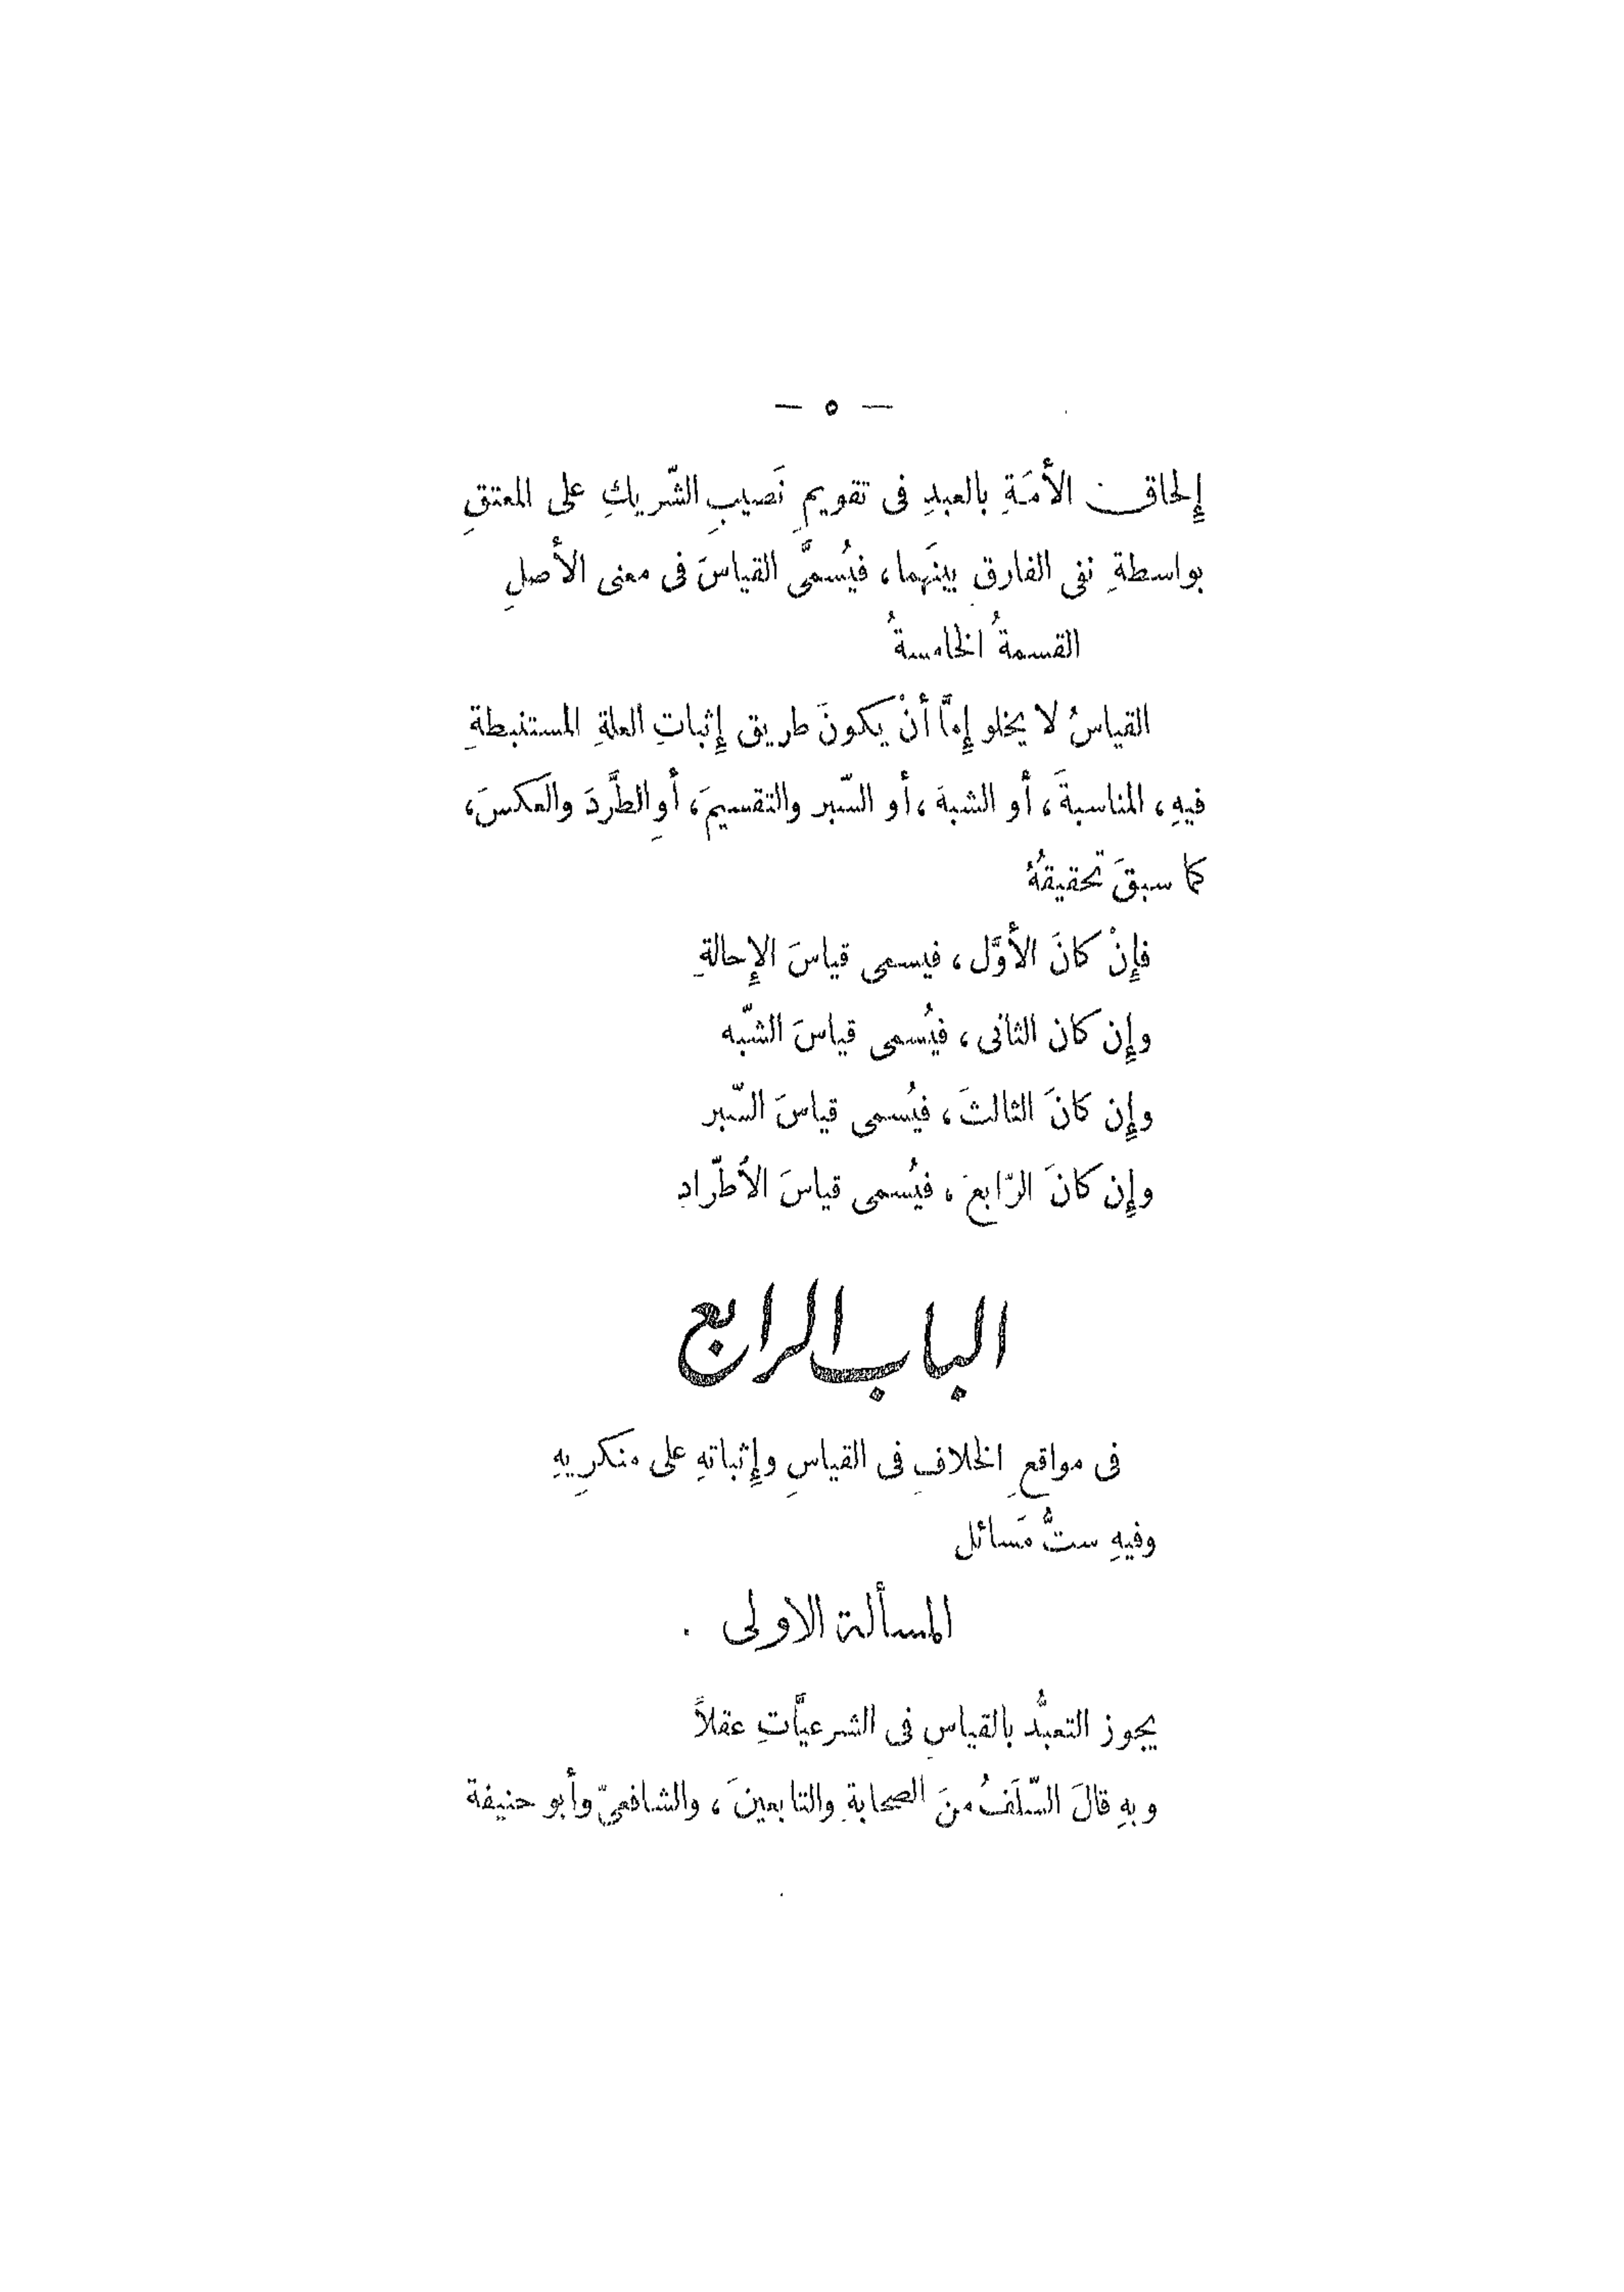 — ٥ —
إِلحاق الأمَةِ بالعبدِ فى تقويمِ نَصيبِ الشّريكِ على المعتقِ
بواسطةِ نفى الفارق بينَهما، فيُسمَّى القياسَ فى معنى الأصلِ
القسمةُ الخامسةُ
القياسُ لا يخلو إِمَّا أنْ يكونَ طريق إِثباتِ العلةِ المستنبطةِ
فيهِ، المناسبةَ، أو الشبهَ، أو السّبر والتقسيمَ، أوِ الطَّردَ والعكسَ،
كما سبقَ تحقيقهُ
فإِنْ كانَ الأوَّل، فيسمى قياسَ الإِحالةِ
وإِن كان الثانى، فيُسمى قياسَ الشّبه
وإِن كانَ الثالثَ، فيُسمى قياسَ السّبر
وإِن كانَ الرّابعَ، فيُسمى قياسَ الأطّرادِ
الباب الرابع
فى مواقعِ الخلافِ فى القياسِ وإِثباتهِ على منكرِيهِ
وفيهِ ستُّ مَسائل
المسألة الاولى
يجوز التعبُّد بالقياسِ فى الشرعيَّاتِ عقلاً
وبهِ قالَ السّلَفُ منَ الصحابةِ والتابعينَ، والشافعىّ وأبو حنيفة